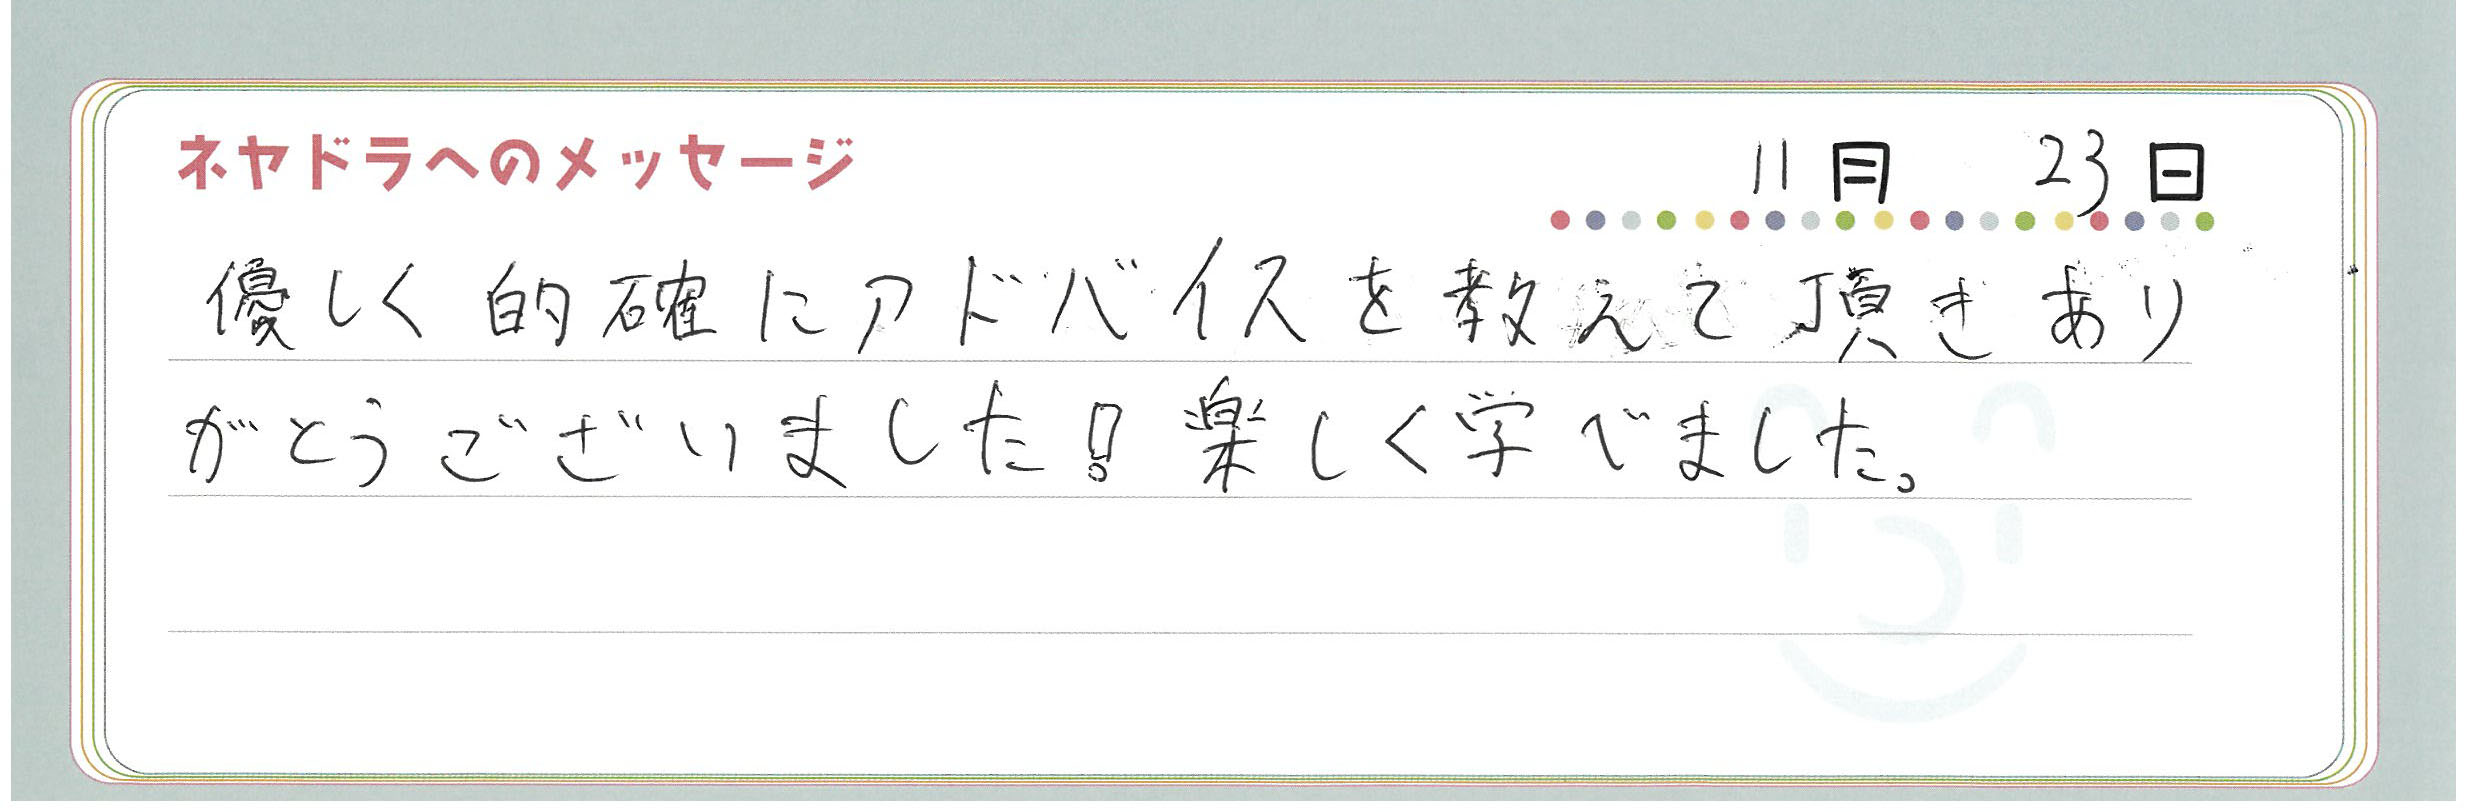 ネヤドラへのメッセージ 11月 23日
優しく的確にアドバイスを教えて頂きあり
がとうございました！楽しく学べました。